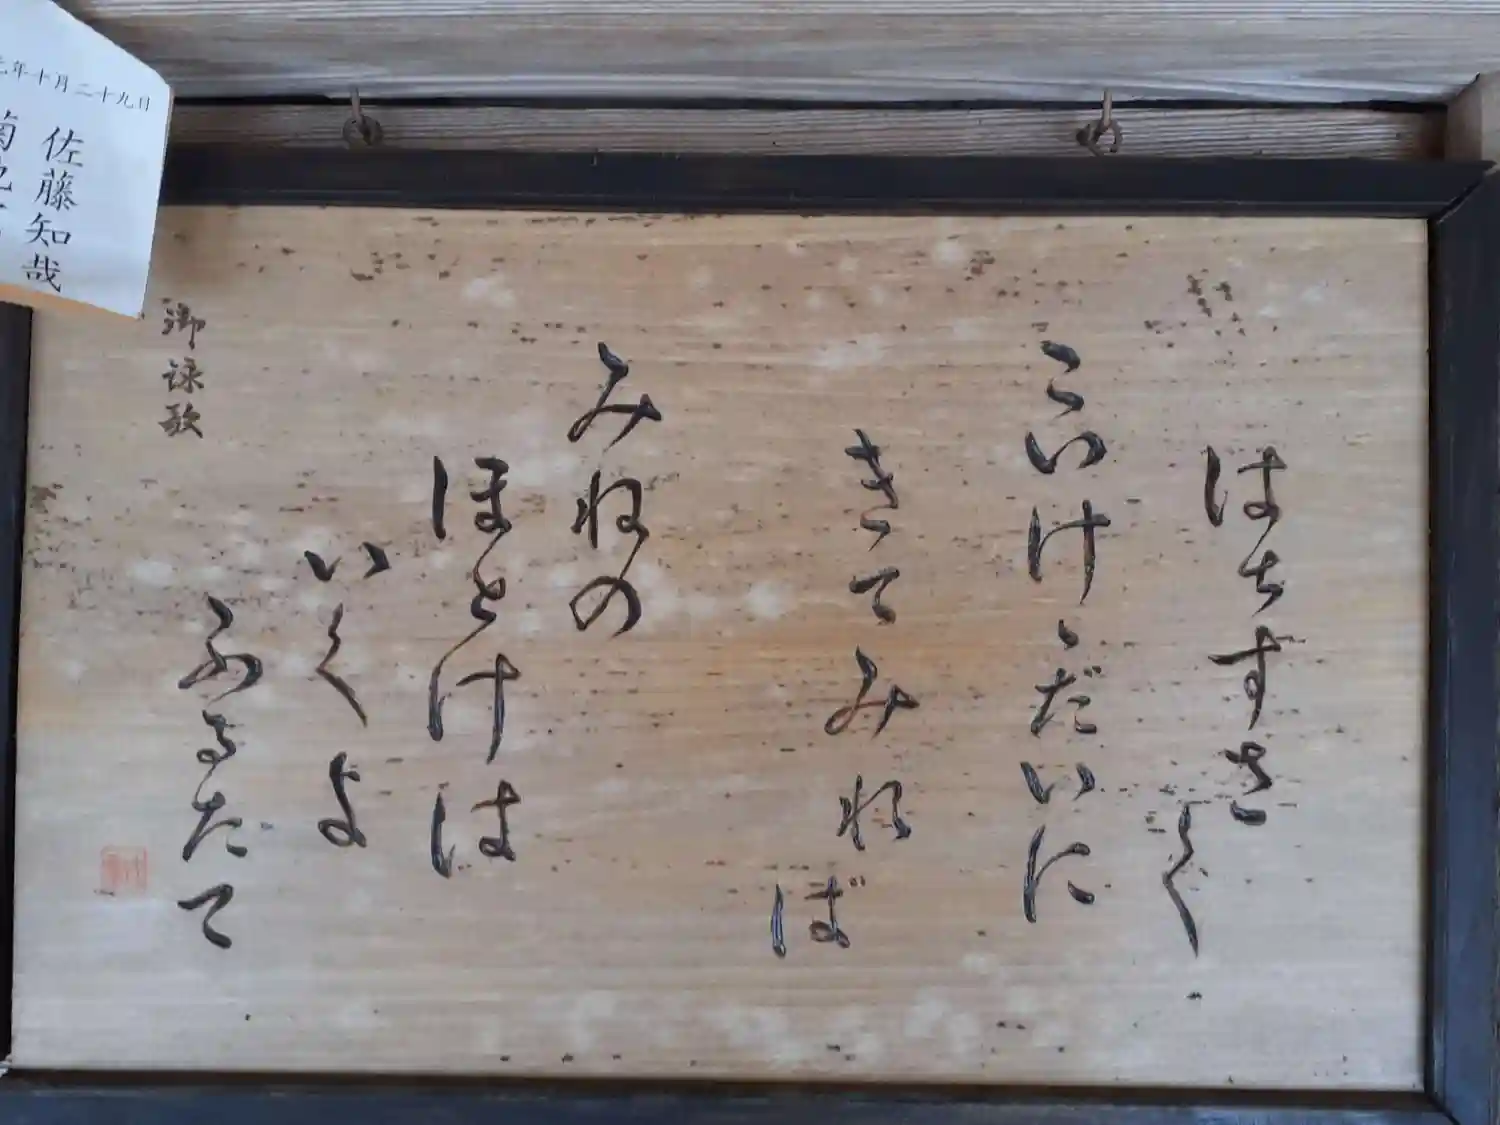 はちすさく
こいけゝだいに
きてみれば
みねの
ほとけは
いくよ
ふるたて
御詠歌
元年十月二十九日
佐藤知哉